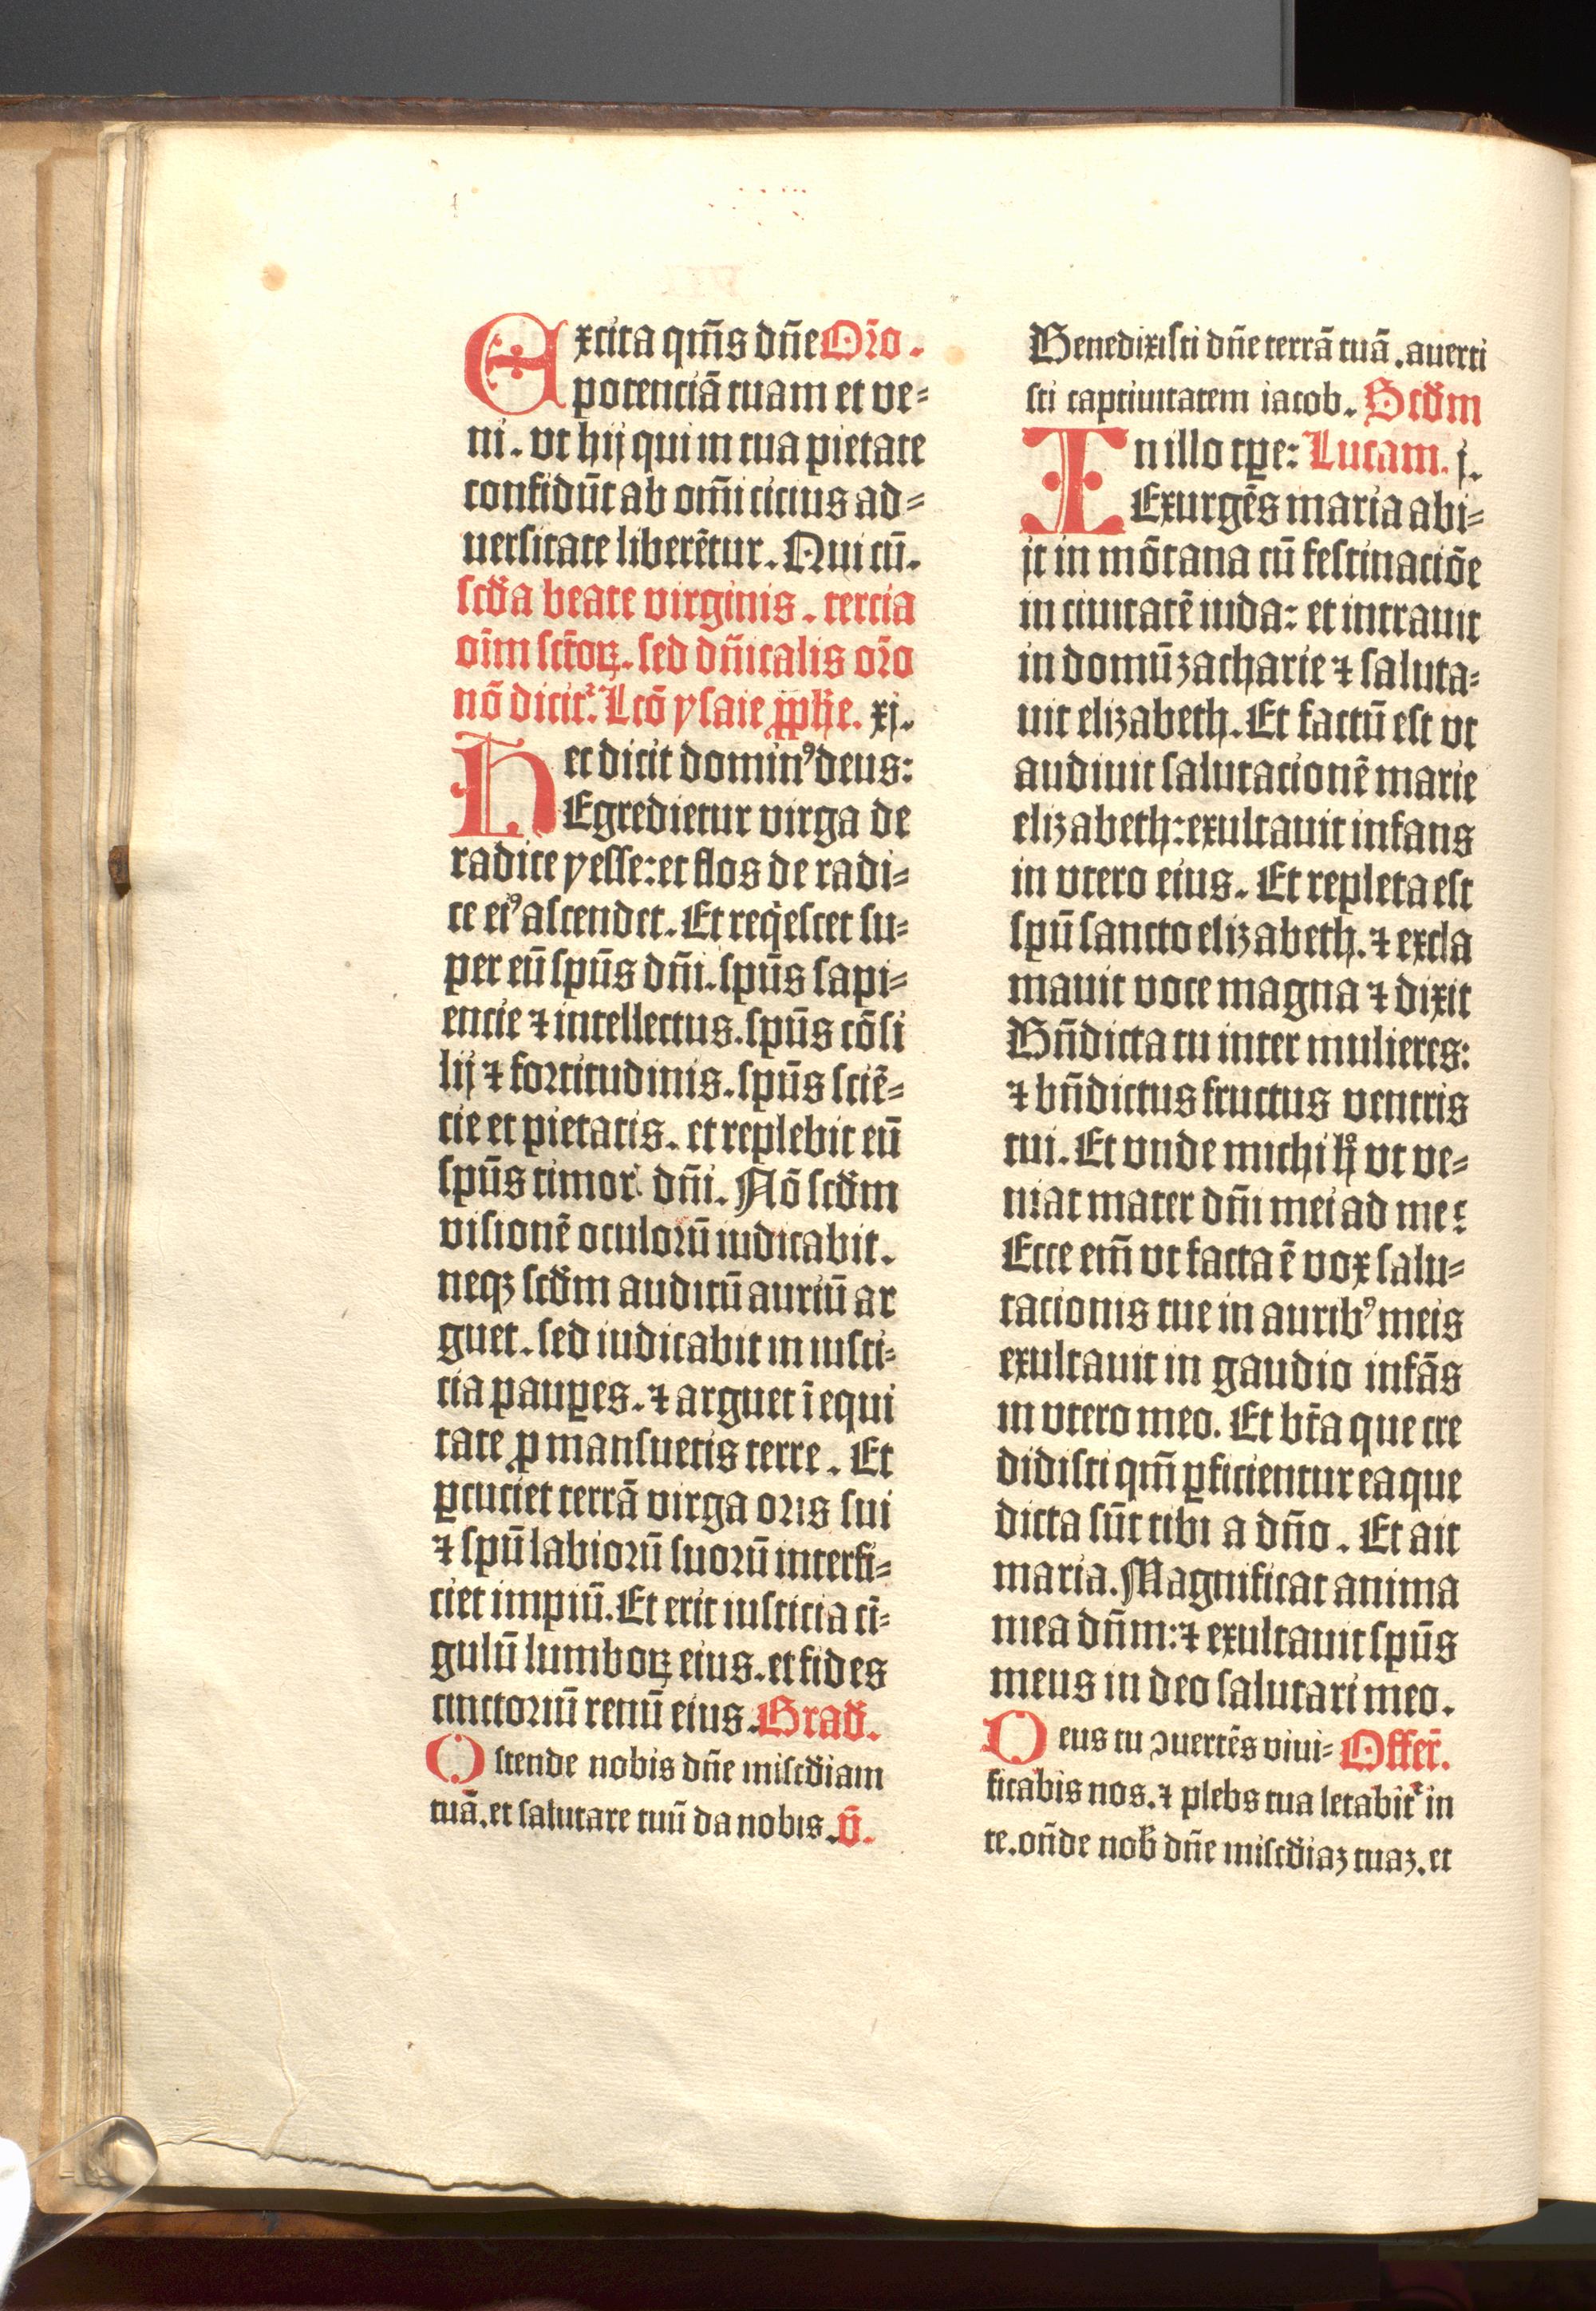 Excita qm̄s dn̄e Or̄o.
potenciā tuam et ve⸗
ni. vt hij qui in tua pietate
confidūt ab om̄i cicius ad⸗
uersitate liberētur. Qui cū.
scd̄a beate virginis. tercia
oīm sct̄oꝝ. sed dn̄icalis or̄o
nō dicit᷑. Lcō ysaie ꝓph̄e. xj.
Hec dicit dominꝰ deus:
Egredietur virga de
radice yesse: et flos de radi⸗
ce eiꝰ ascendet. Et req̄escet su⸗
per eū spūs dn̄i. spūs sapi⸗
encie ⁊ intellectus. spūs cōsi
lij ⁊ fortitudinis. spūs sciē⸗
cie et pietatis. et replebit eū
spūs timor dn̄i. Nō scd̄m
visionē oculorū iudicabit.
neqꝫ scd̄m auditū auriū ar
guet. sed iudicabit in iusti⸗
cia pauꝑes. ⁊ arguet ī equi
tate ꝓ mansuetis terre. Et
ꝑcuciet terrā virga oris sui
⁊ spū labiorū suorū interfi⸗
ciet impiū. Et erit iusticia cī⸗
gulū lumboꝝ eius. et fides
cinctoriū renū eius. Grad̄.
Ostende nobis dn̄e miscd̄iam
tuā. et salutare tuū da nobis. v̄.
Benedixisti dn̄e terrā tuā. auerti
sti captiuitatem iacob. Scd̄m
In illo tꝑe: Lucam. j.
Exurgēs maria abi⸗
jt in mōtana cū festinaciōe
in ciuitatē iuda: et intrauit
in domū zacharie ⁊ saluta⸗
uit elizabeth. Et factū est vt
audiuit salutacionē marie
elizabeth: exultauit infans
in vtero eius. Et repleta est
spū sancto elizabeth. ⁊ excla
mauit voce magna ⁊ dixit
Bn̄dicta tu inter mulieres:
⁊ bn̄dictus fructus ventris
tui. Et vnde michi hͦ vt ve⸗
niat mater dn̄i mei ad me:
Ecce em̄ vt facta ē vox salu⸗
tacionis tue in auribꝰ meis
exultauit in gaudio infās
in vtero meo. Et bt̄a que cre
didisti qm̄ ꝑficientur ea que
dicta sūt tibi a dn̄o. Et ait
maria. Magnificat anima
mea dn̄m: ⁊ exultauit spūs
meus in deo salutari meo.
Deus tu ꝯuertēs viui⸗ Offer̄.
ficabis nos. ⁊ plebs tua letabit᷑ in
te. on̄de nob̄ dn̄e miscd̄iaꝫ tuaꝫ. et